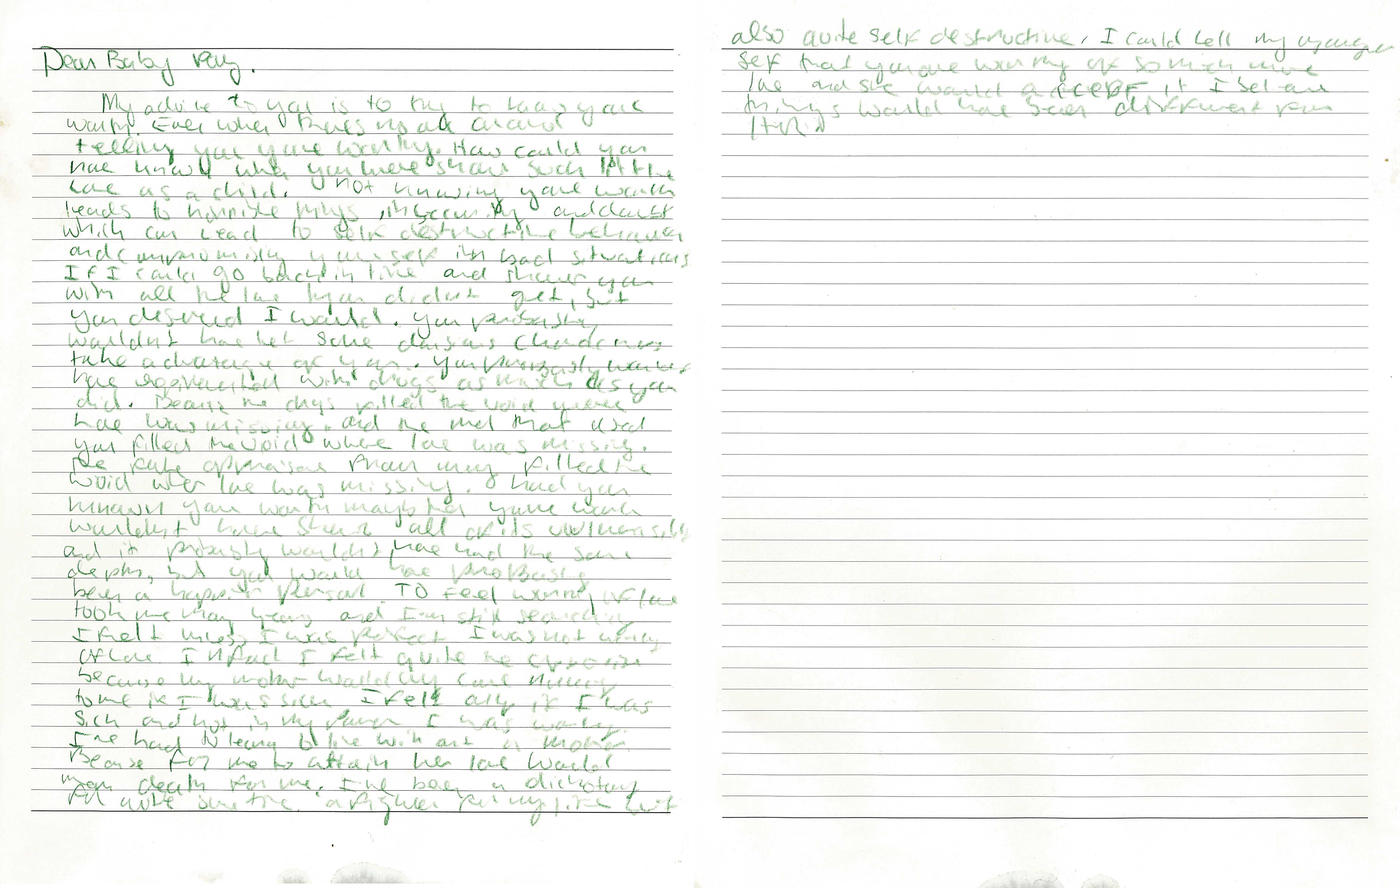 Dear Baby
My advice to you is to try to know you're
worthy. Even when there's no one around
telling you you're worthy. How could you
have known when you were shown such little
love as a child. Not knowing your worth
leads to horrible things, insecurity and doubt
which can lead to self destructive behavior
and compromising yourself in bad situations
If I could go back in time and shower you
with all the love you didn't get, but
you deserved I would. You probably
wouldn't have let some
take advantage of you. You probably wouldn't
have experimented with drugs as much as you
did. Because the drugs filled the void where
love was missing, and the men that used
you filled the void where love was missing.
The fake filled the
void when love was missing. Had you
known your worth maybe your work
wouldn't have shown all of its vulnerability
and it probably wouldn't have had the same
depths, but you would have probably
been a happier person. To feel worthy of love
took me many years and I'm still searching
I felt unless I was perfect I was not worthy
of love. In fact I felt quite the opposite
because my mother would only come
to me if I was sick I felt only if I was
sick and not in my power I was worthy.
I've had to learn to live without a mother.
Because for me to attain her love would
mean death for me. I've been a dichotomy
I'm quite a fighter for my life but
also quite self destructive. I could tell my younger
self that you are worthy of so much more
love and she would accept it I believe
things would have been different from